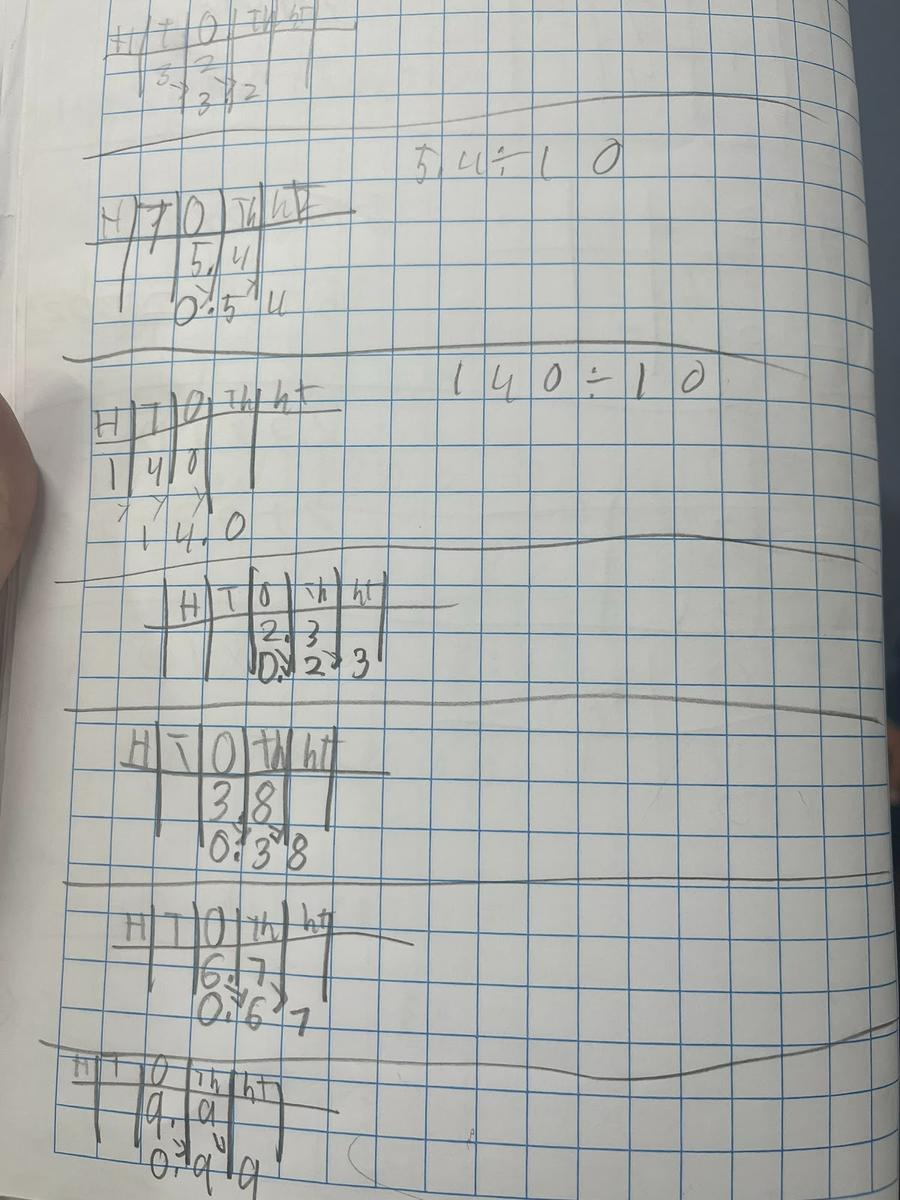 H T O Th ht
3 2
3 2
5.4 ÷ 10
H T O Th ht
5. 4
0. 5 4
140 ÷ 10
H T O Th ht
1 4 0
1 4. 0
H T O Th ht
2. 3
0. 2 3
H T O Th ht
3. 8
0. 3 8
H T O Th ht
6. 7
0. 6 7
H T O Th ht
9. 9
0. 9 9